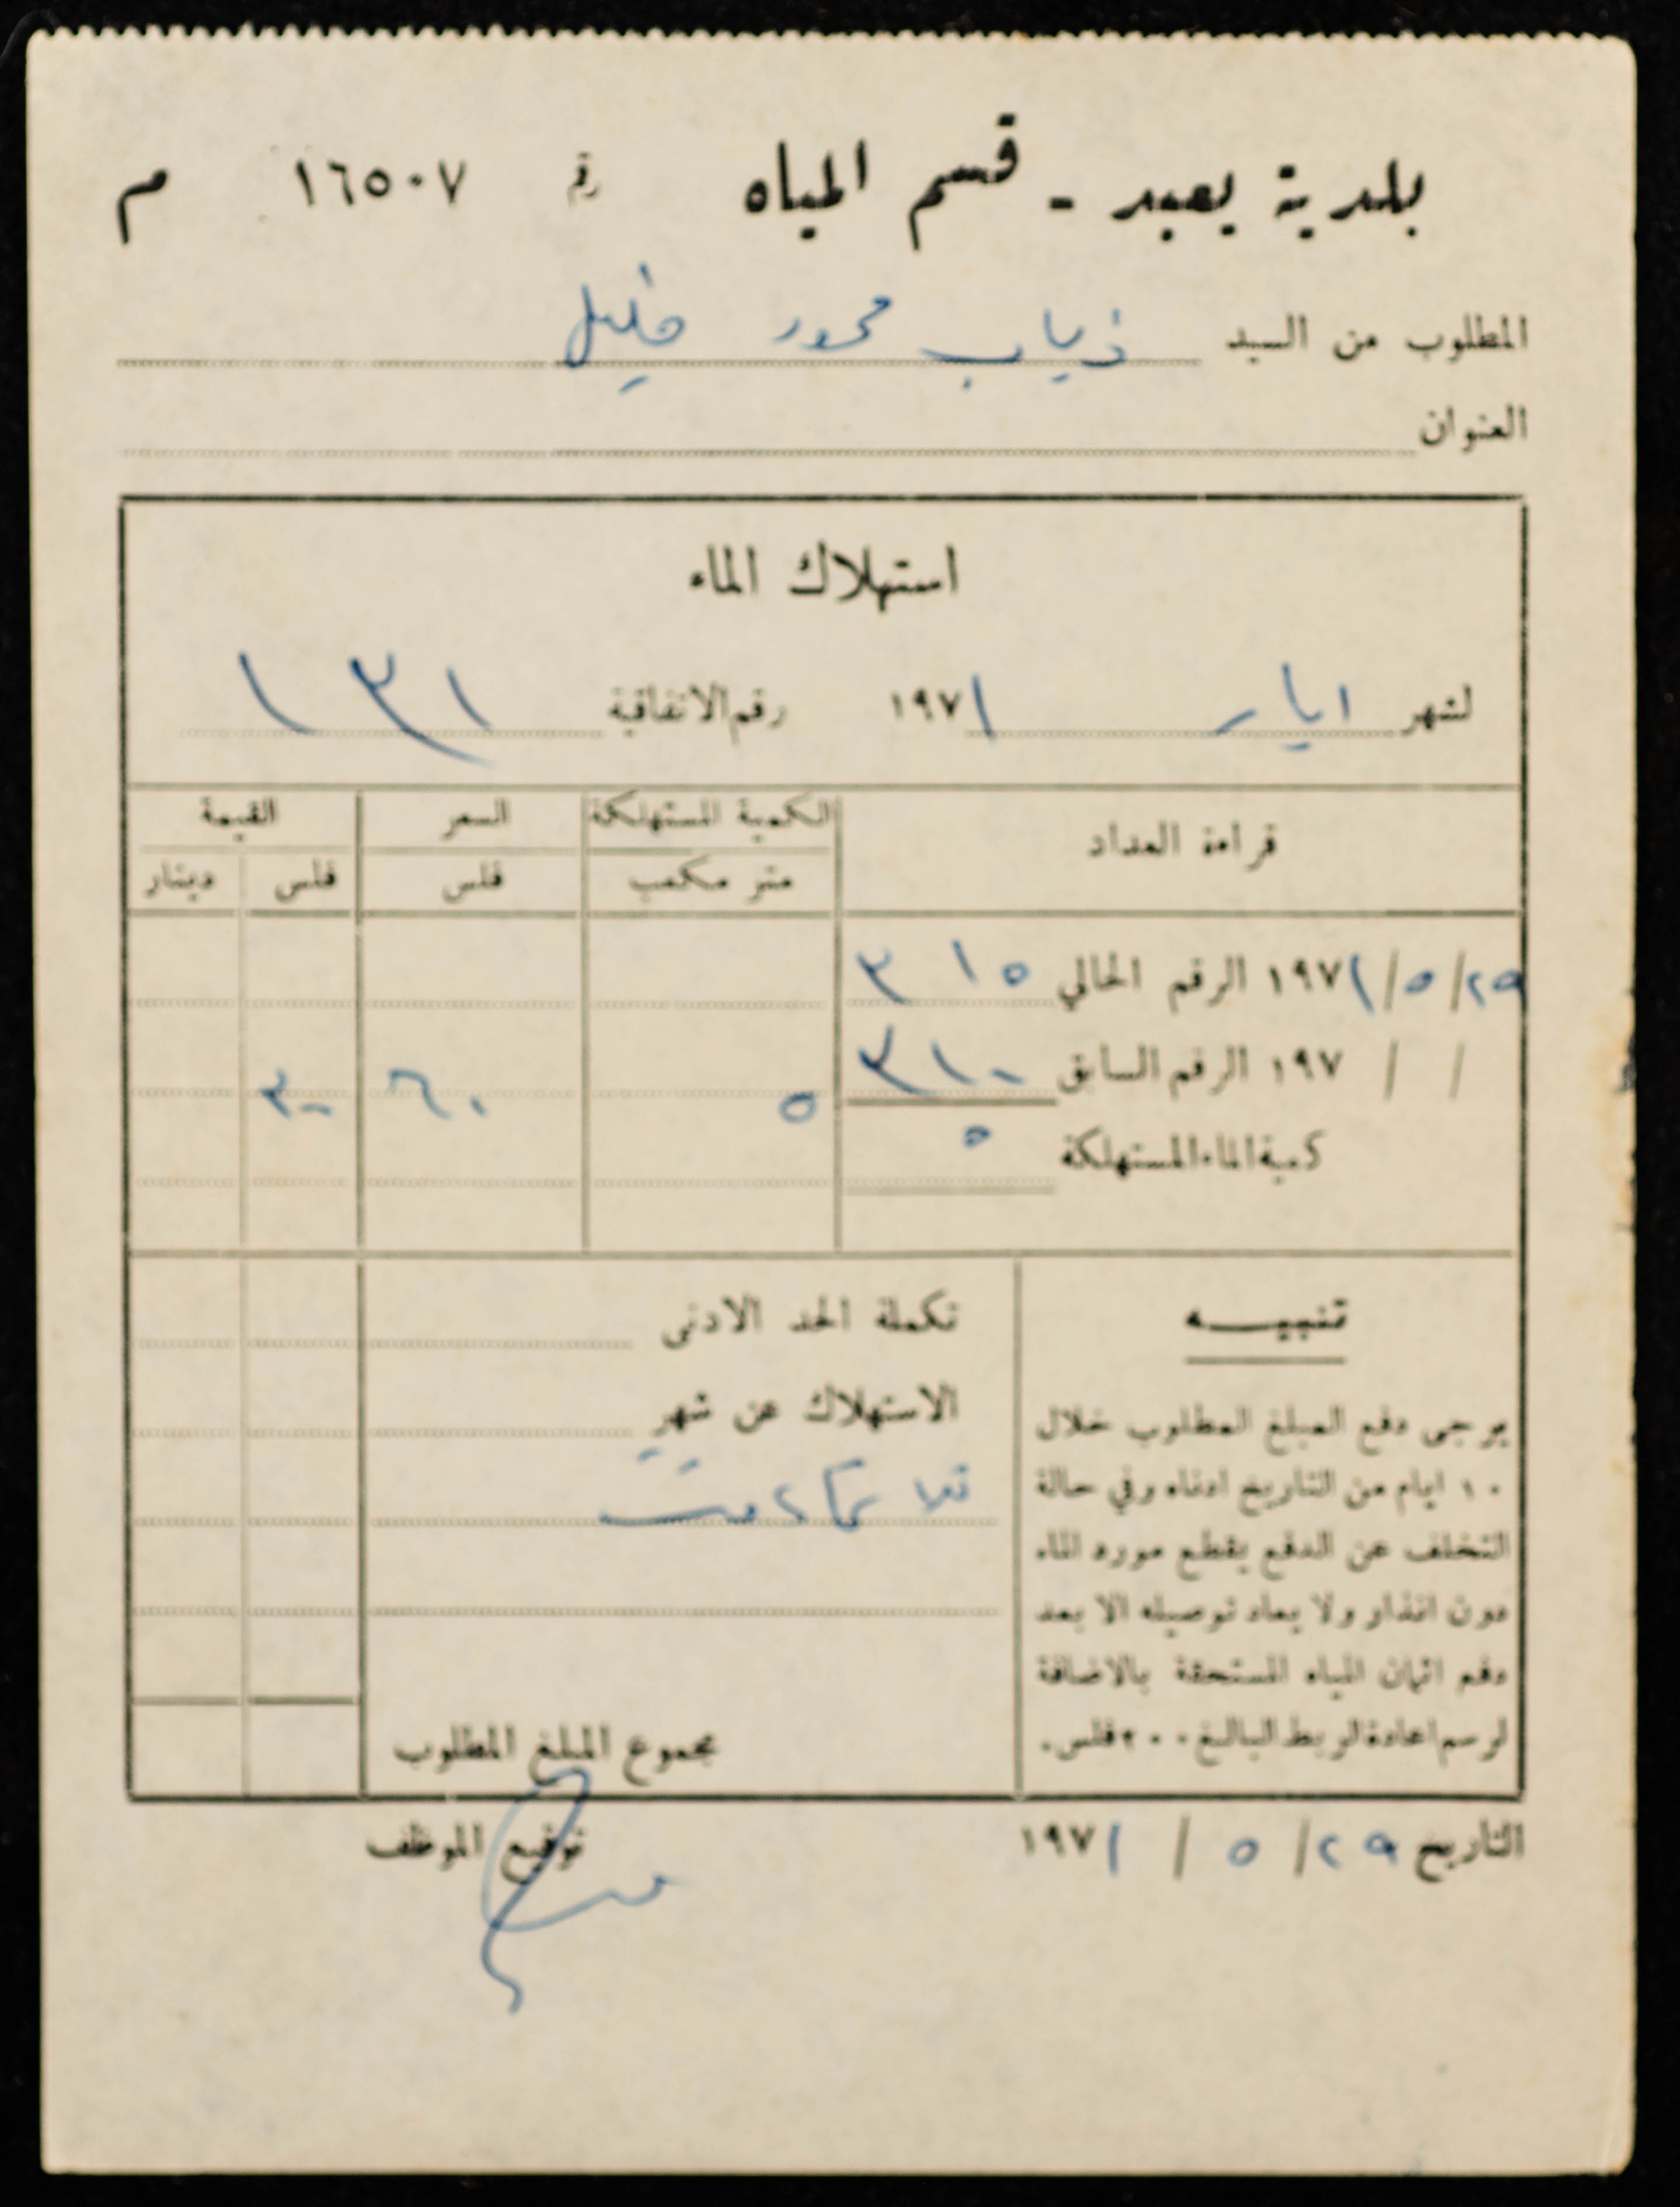 بلدية يعبد - قسم المياه رقم ١٦٥٠٧ م
المطلوب من السيد ذياب محمود خليل
العنوان
استهلاك الماء
لشهر ايار ١٩٧١ رقم الاتفاقية ١٣١
قراءة العداد الكمية المستهلكة السعر القيمة
متر مكعب فلس فلس دينار
٢٩/٥/١٩٧١ الرقم الحالي ٣١٥
/ / ١٩٧ الرقم السابق ٣١٠ ٥ ٦٠ ٣٠٠
كمية الماء المستهلكة ٥
تنبيــه
يرجى دفع المبلغ المطلوب خلال
١٠ ايام من التاريخ ادناه وفي حالة
التخلف عن الدفع يقطع مورد الماء
دون انذار ولا يعاد توصيله الا بعد
دفع اثمان المياه المستحقة بالاضافة
لرسم اعادة الربط البالغ ٢٠٠ فلس.
تكملة الحد الادنى
الاستهلاك عن شهر
مجموع المبلغ المطلوب
التاريخ ٢٩/ ٥ / ١٩٧١ توقيع الموظف